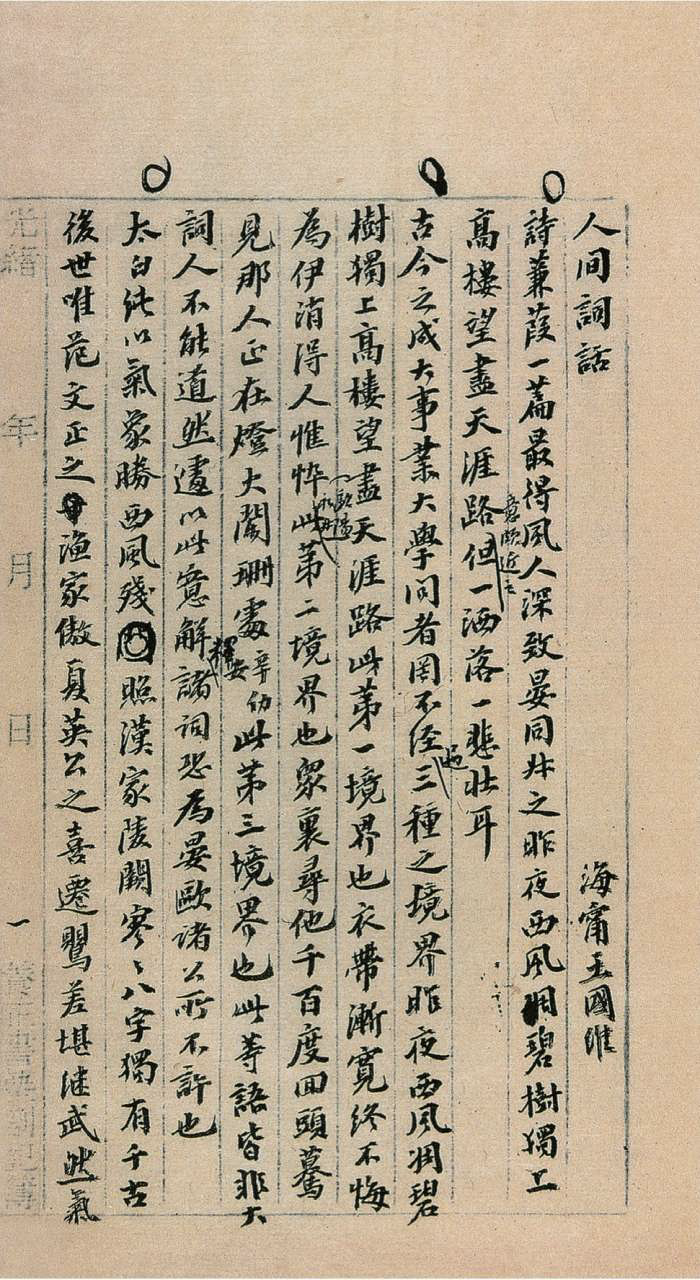 人间詞話 海甯王國維
詩蒹葭一篇最得風人深致晏同叔之昨夜西風凋碧樹獨上
高樓望盡天涯路意頗近之但一洒落一悲壯耳
古今之成大事業大學問者罔不經過三種之境界昨夜西風凋碧
樹獨上高樓望盡天涯路此第一境界也衣帶漸寬終不悔
為伊消得人憔悴(歐陽永叔)此第二境界也眾裏尋他千百度回頭驀
見那人正在燈火闌珊處辛幼安此第三境界也此等語皆非大
詞人不能道然遽以此意解釋諸詞恐為晏歐諸公所不許也
太白純以氣象勝西風殘照漢家陵闕寥〻八字獨有千古
後世唯范文正之漁家傲夏英公之喜遷鶯差堪継武然氣
光緒 年 月 日 一